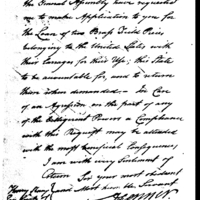 the General Assembly have requested
me to make Application to you for
the Loan of two Brass Field Pieces
belonging to the United States with
their Carriages for their Use; this State
to be accountable for, and to return
them when demanded — In Case
of an Agression on the part of any
of the Belligerent Powers a Compliance
with this Request may be attended
with the most beneficial Consequences,
I am with every Sentiment of
Esteem For your most obedient
most hum Servant